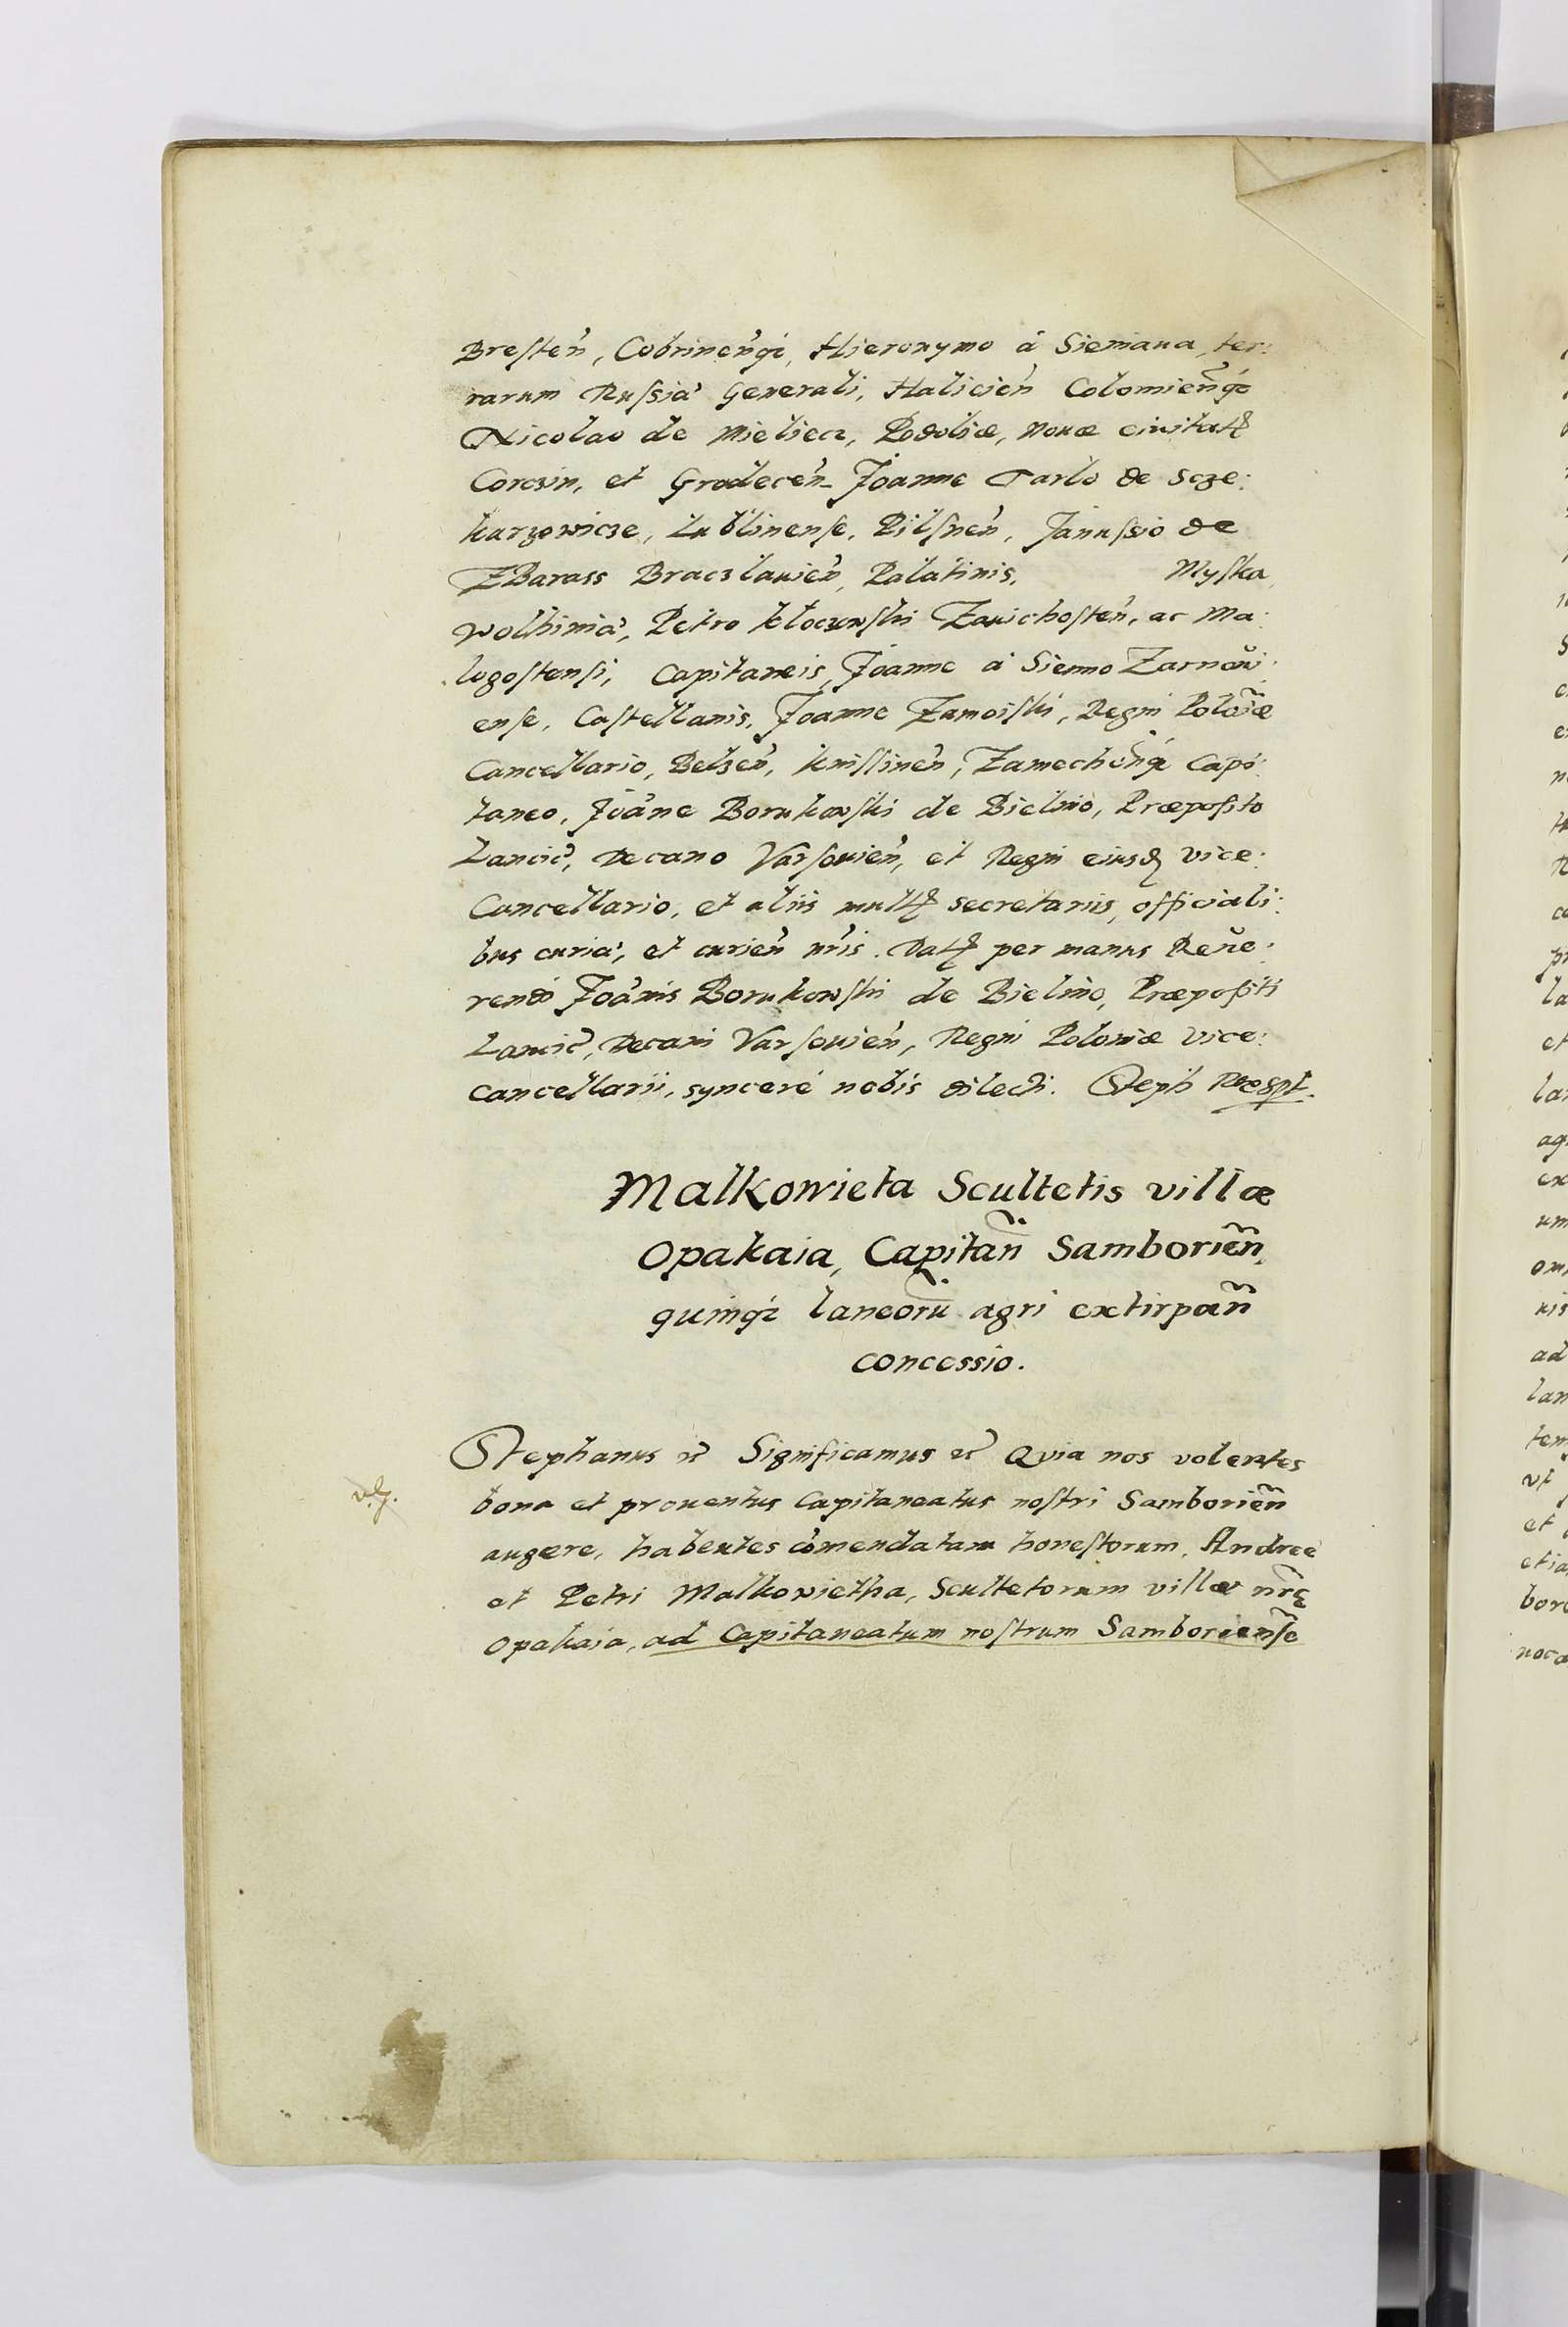 Bresten̄, Cobrinen̄q̷, Hieronymo á Sieniaua, ter:
rarum Russiæ Generali, Halicien̄ Colomien̄q̷
Nicolao de Mieliecz, Podoliæ, nouæ ciuitat̷
Corcxin, et Grodecen̄ Joanne Tarlo de Scze:
karzowicze, Lublinense, Pilsnen̄, Janussio de
ZBarass Braczlauien̄, Palatinis, Myska
wolhiniæ, Petro Kłoczwski Zauichosten̄, ac Ma:
logostensi, Capitaneis, Joanne á Sienno Zarnoūi:
ense, Castellanis, Joanne Zamoiski, Regni Polōiæ
Cancellario, Belzen̄, knissinen̄, Zamechen̄q̷ Capi:
taneo, Joāne Borukowski de Bielino, Præposito
Lancic̄, Decano Varsouien̄, et Regni eiusd̷ vice:
Cancellario, et aliis mult̷ secretariis, officiali:
bus curiæ, et curien̄ nr̄is. Dat̷ per manus Reue:
rendi Joānis Borukowski de Bielino, Præpositi
Lancic̄, Decani Varsouien̄, Regni Poloniæ vice:
cancellarii, synceré nobis dilecti. Steph Rex spt.
Malkowieta Scultetis villæ
Opakaia, Capitan̄ Samborien̄,
quinq̷ laneorū agri extirpan̄
concessio.
Stephanus etc̄ Significamus etc̄ Quia nos volentes
v.g.
bona et prouentus Capitaneatus nostri Samborien̄
augere, habentes cōmendatam honestorum, Andree
et Petri Malkowietha, Scultetorum villæ nr̄ę
Opakaia, ad Capitaneatum nostrum Samboriense